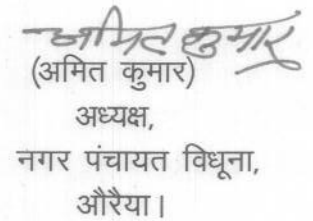 अमित कुमार
(अमित कुमार)
अध्यक्ष,
नगर पंचायत विधूना,
औरैया।